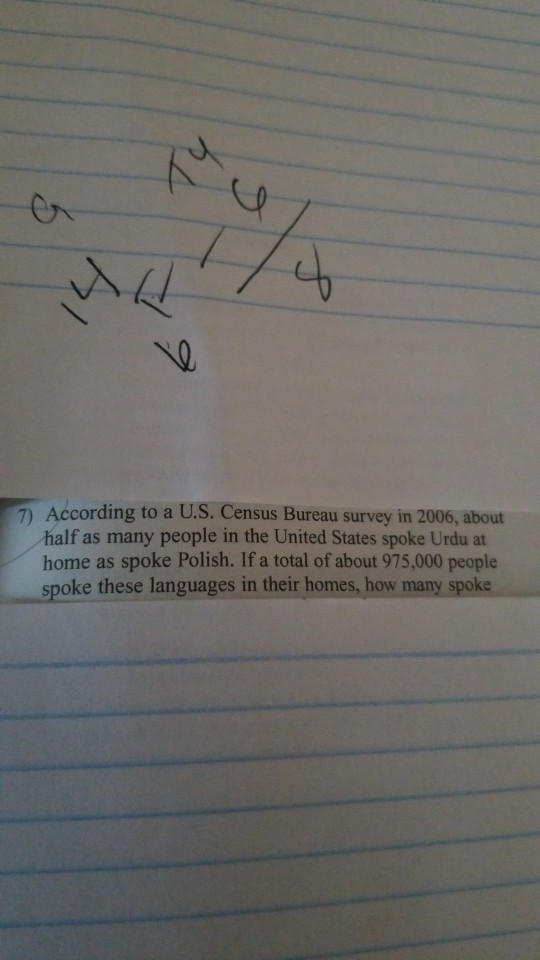 6
1/8
14
6
7) According to a U.S. Census Bureau survey in 2006, about
half as many people in the United States spoke Urdu at
home as spoke Polish. If a total of about 975,000 people
spoke these languages in their homes, how many spoke